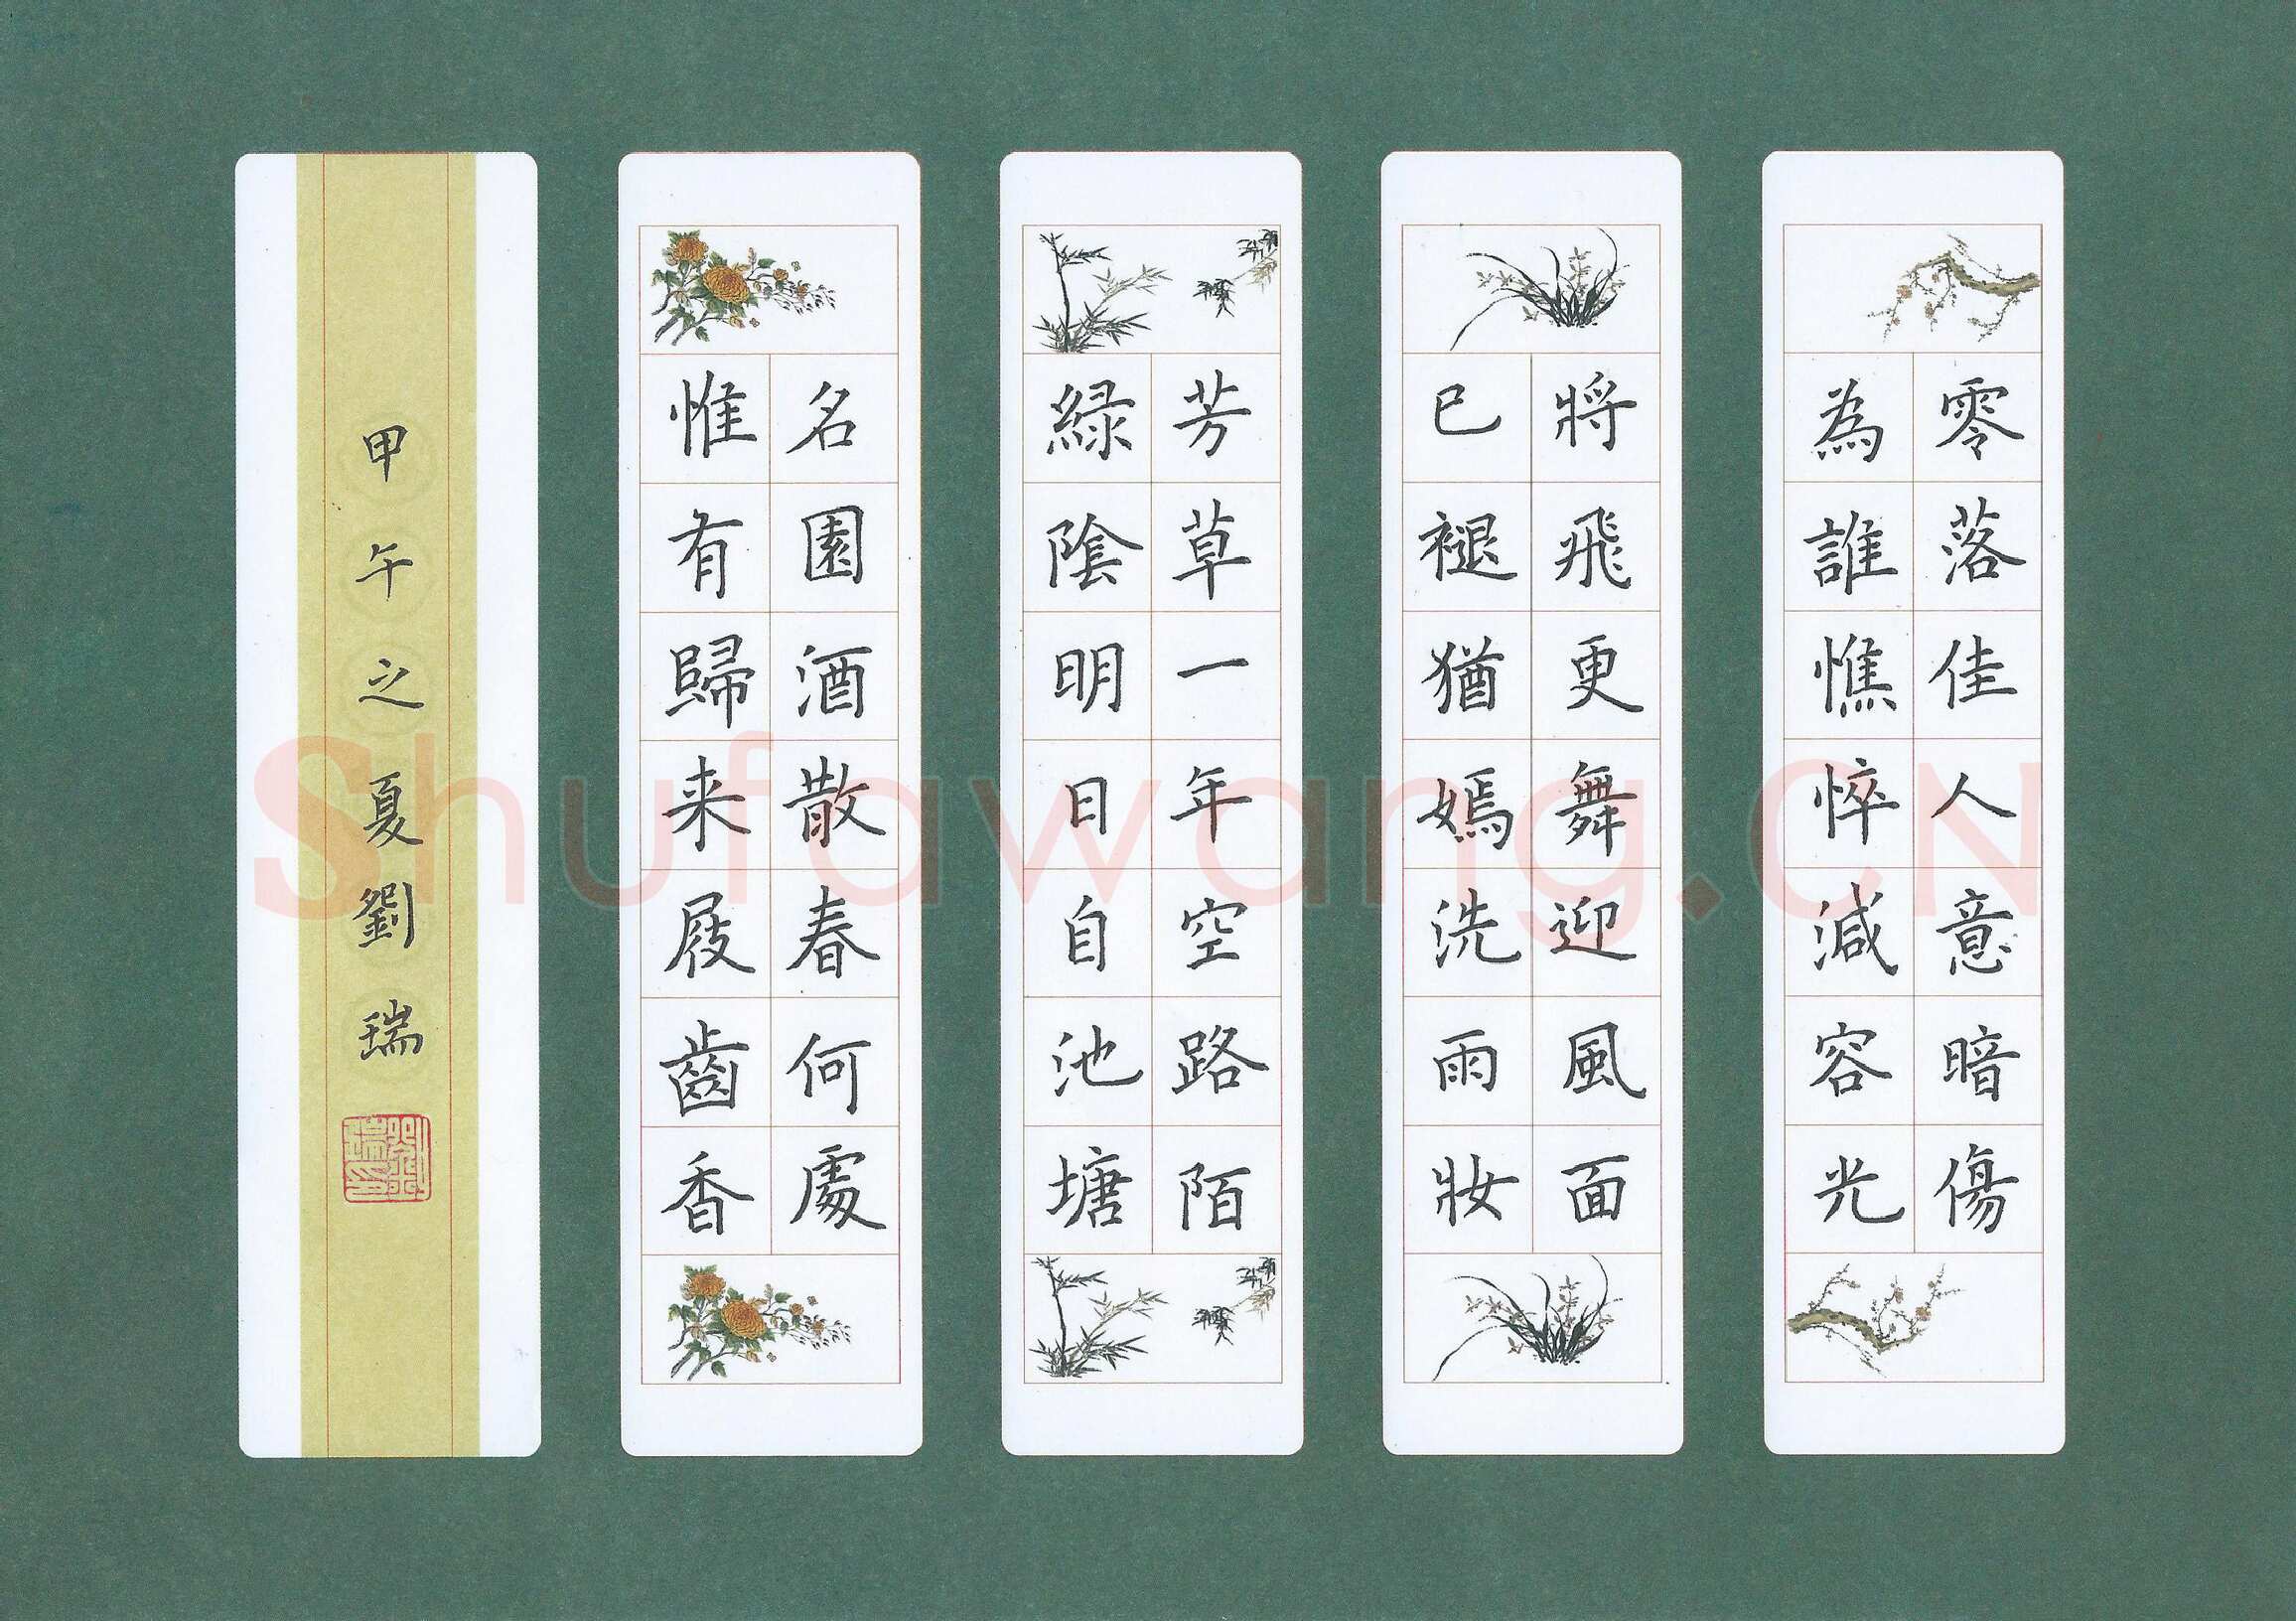 零落佳人意暗傷
為誰憔悴減容光
將飛更舞迎風面
已褪猶嫣洗雨妝
芳草一年空路陌
緑陰明日自池塘
名園酒散春何處
惟有歸来屐齒香
甲午之夏劉瑞
劉瑞印
Shufawang.CN